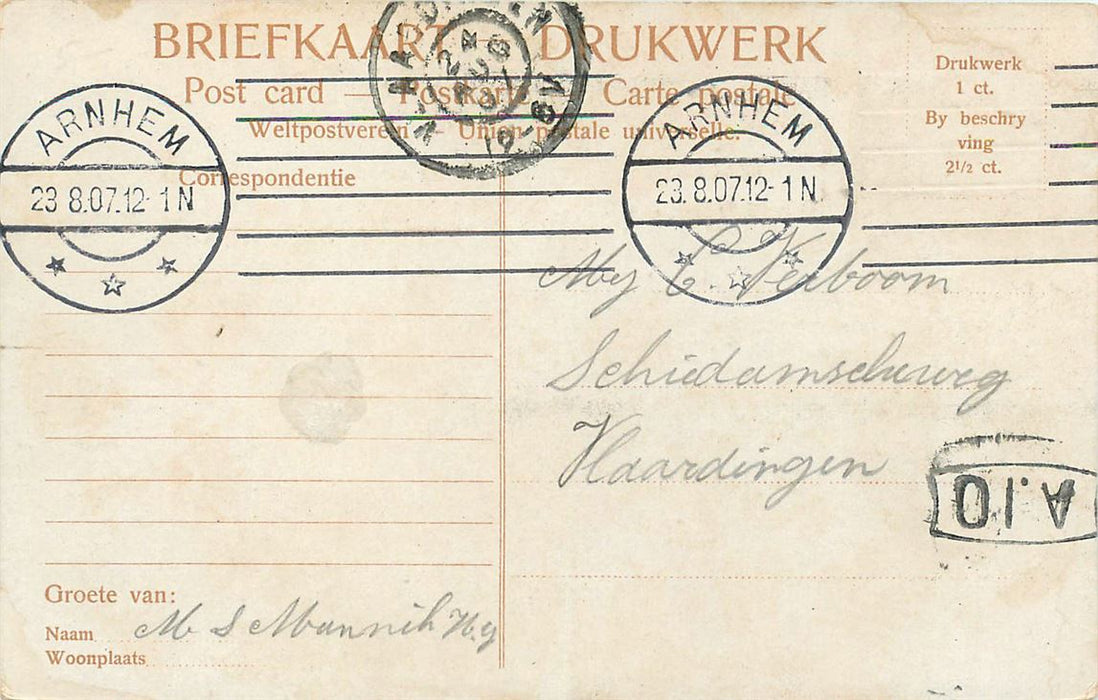 BRIEFKAART DRUKWERK
Post card — Postkarte — Carte postale
Weltpostverein — Union postale universelle.
Drukwerk
1 ct.
By beschry
ving
2½ ct.
ARNHEM
23 8.07.12-1 N
ARNHEM
23.8.07.12-1 N
Correspondentie
Mej C. Verboom
Schiedamscheweg
Vlaardingen
A.10
Groete van:
Naam M S
Woonplaats